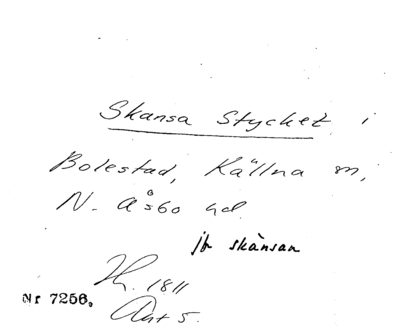 Skansa Stycket i
Bolestad, Källna sn,
N. Åsbo hd.
jfr skånsan
H. 1811
Nr 7256,
Akt 5.